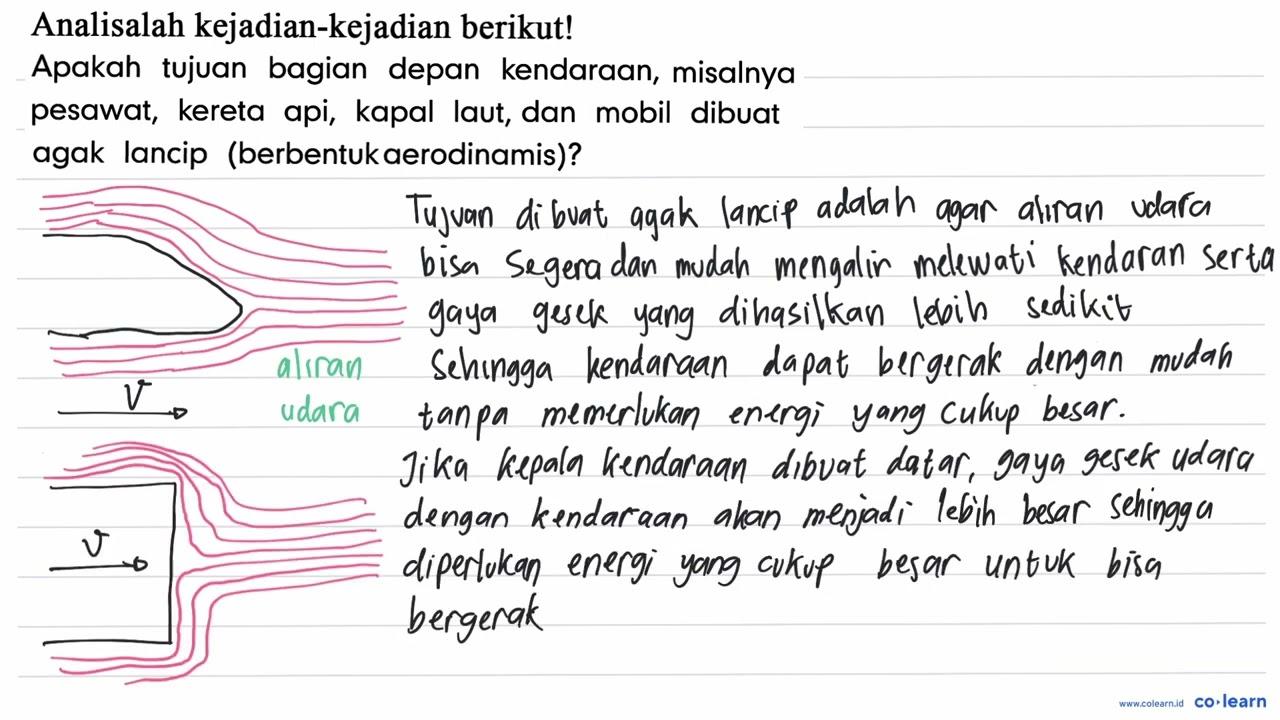 Analisalah kejadian-kejadian berikut!
Apakah tujuan bagian depan kendaraan, misalnya
pesawat, kereta api, kapal laut, dan mobil dibuat
agak lancip (berbentuk aerodinamis)?
Tujuan dibuat agak lancip adalah agar aliran udara
bisa Segera dan mudah mengalir melewati kendaran serta
gaya gesek yang dihasilkan lebih sedikit
Sehingga kendaraan dapat bergerak dengan mudah
tanpa memerlukan energi yang cukup besar.
Jika kepala kendaraan dibuat datar, gaya gesek udara
dengan kendaraan akan menjadi lebih besar sehingga
diperlukan energi yang cukup besar untuk bisa
bergerak
aliran
udara
V
V
www.colearn.id co learn